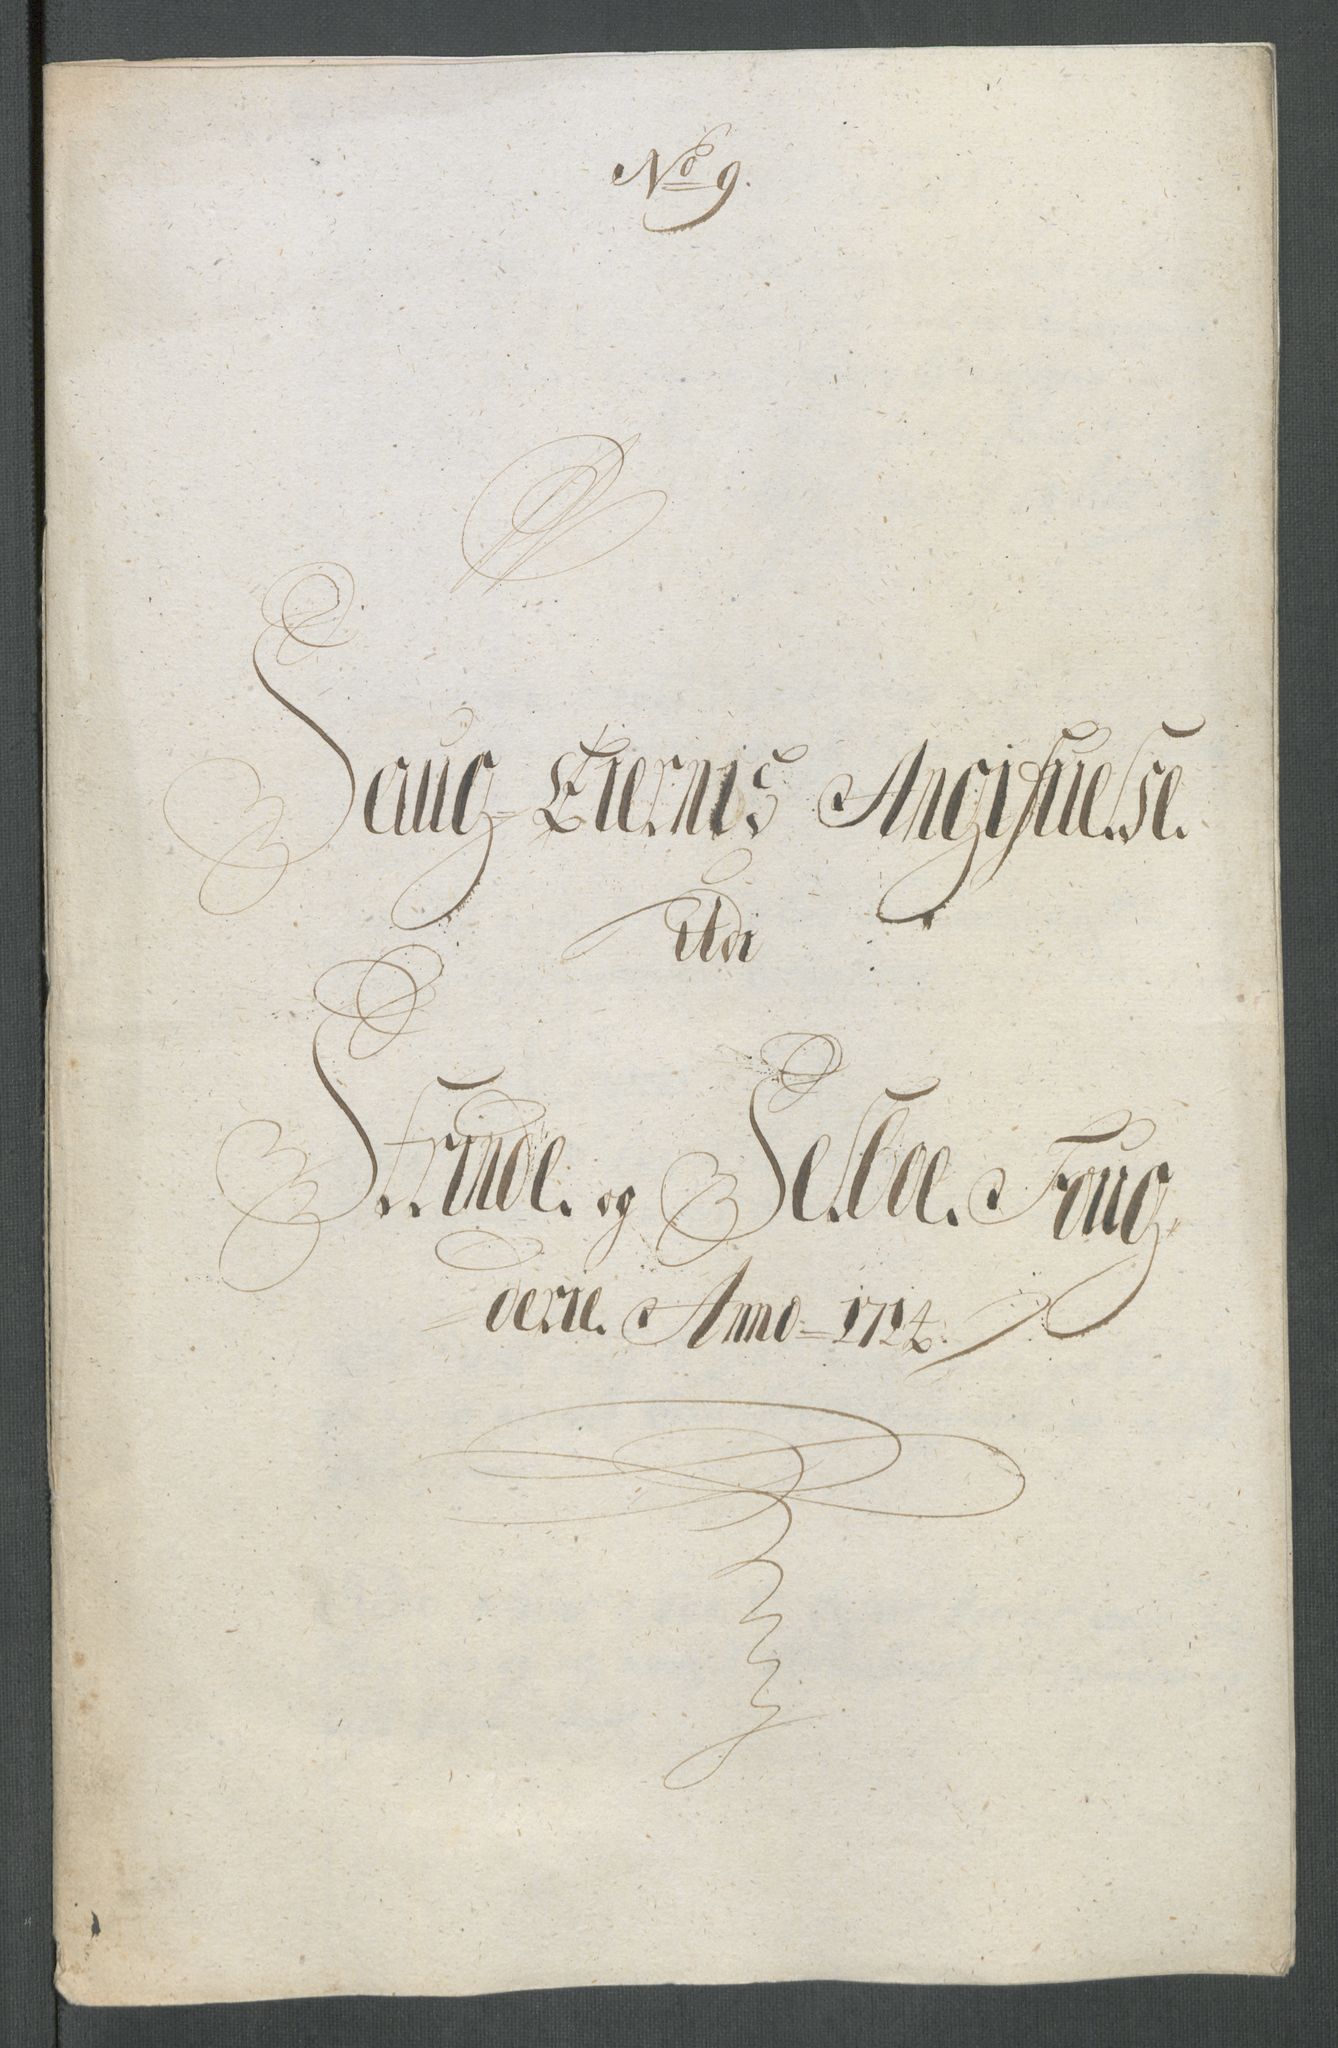 No 9.
Saug Eiernis Angifuelse
Udi
Strinde og Selboe Foug
derie Anno 1714.